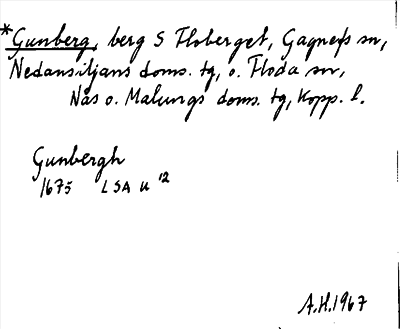 *Gunberg, berg S Floberget, Gagnefs sn,
Nedansiljans doms. tg, o. Floda sn,
Nås o. Malungs doms. tg, Kopp. l.
Gunbergh
1675 LSA U 12
A.H. 1967